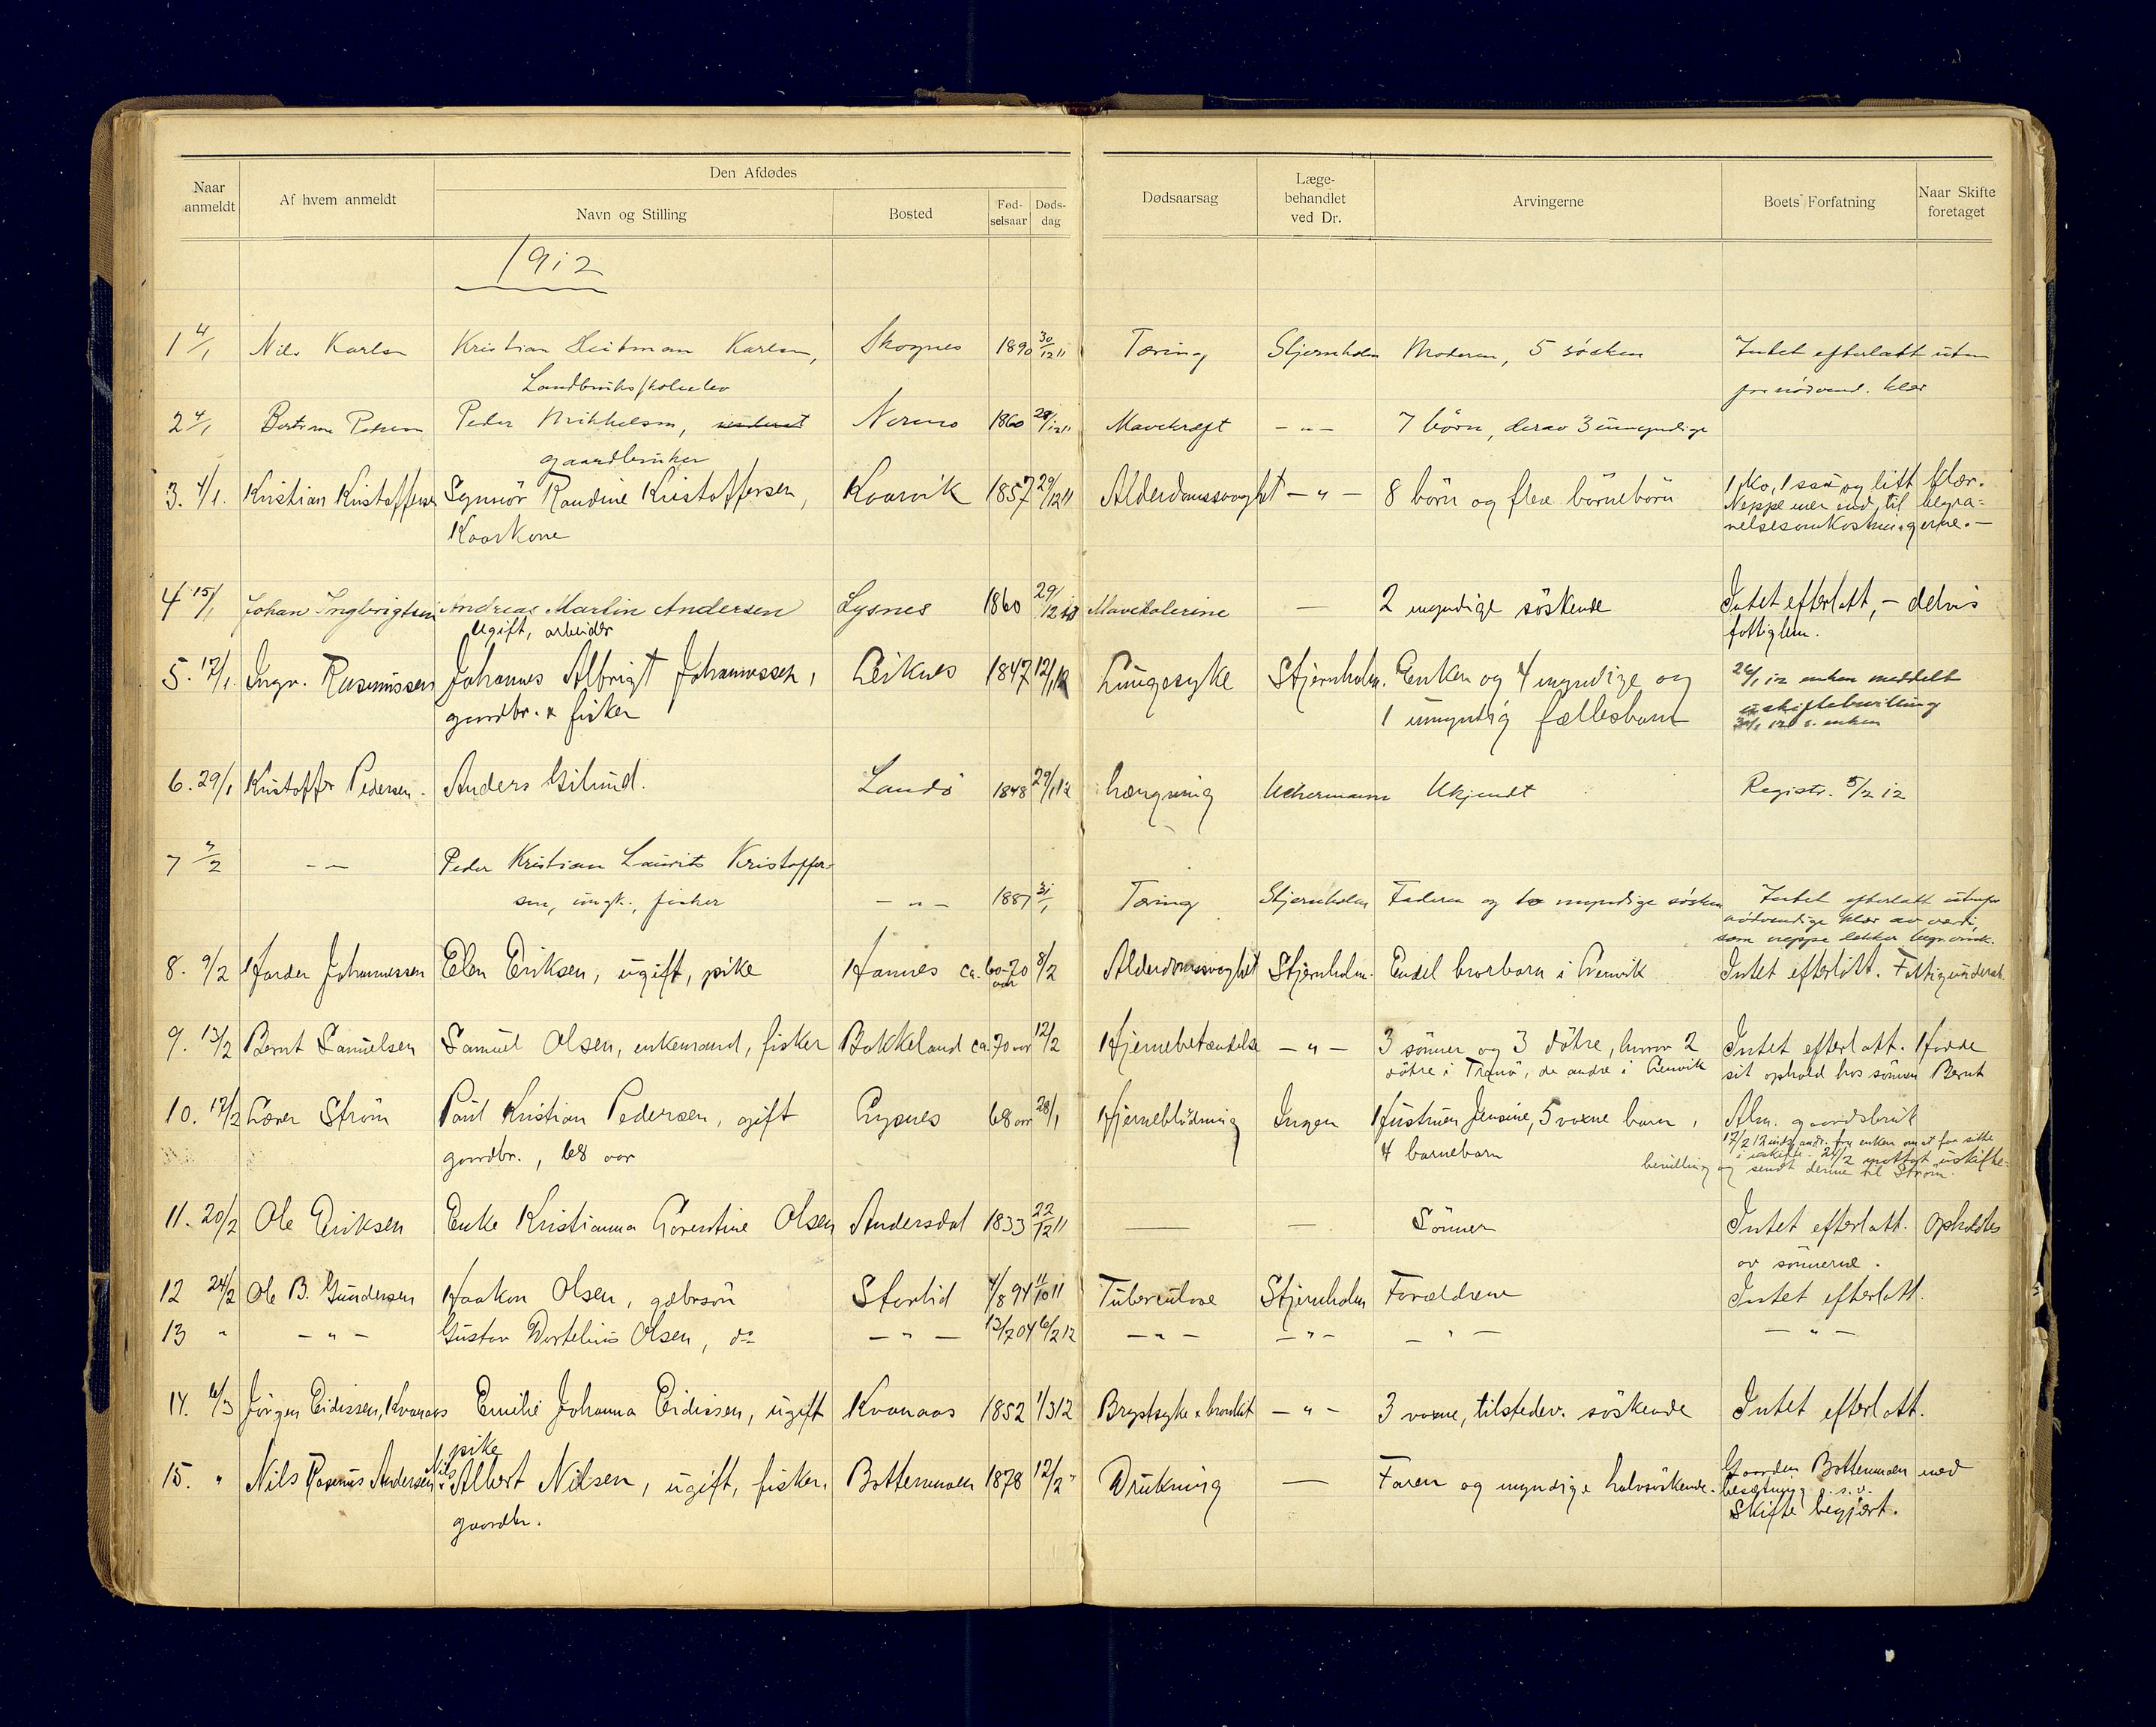 Den Afdødes
Naar anmeldt
Af hvem anmeldt
Navn og Stilling
Bosted
Fød- selsaar
Døds- dag
Dødsaarsag
Læge- behandlet ved Dr.
Arvingerne
Boets Forfatning
Naar Skifte foretaget
1912
1 4/1 Nils Karlsen Kristian Heitman Karlsen, Skognes 1890 30/12 11 Tæring Stjernholm Moderen, 5 søsken Intet efterlatt uten
Landbruksskoleelev for nødvend. klær
2 4/1 Peder Mikkelsen, 1860 29/12 11 Mavekræft - " - 7 børn, derav 3 umyndige
gaardbruker
3. 4/1. Kristian Kristoffersen Synnør Randine Kristoffersen, Kaarvik 1857 29/12 11 Alderdomssvaghet - " - 8 børn og flere børnebørn 1 ko, 1 sau og litt klær.
Kaarkone Neppe mer end til begra-
velsesomkostningerne. -
4 15/1 Johan Ingbrigtsen Andreas Martin Andersen Lysnes 1860 29/12 Mavekolerine — 2 myndige söskende Intet efterlatt, - delvis
Ugift, arbeider fattiglem.
5. 17/1. Ingv. Rasmussen Johannes Albrigt Johannessen, Leiknes 1847 12/1 12 Lungesyke Stjernholm. Enken og 4 myndige og 26/1 12 enken meddelt
gaardbr. & fisker 1 umyndig fællesbarn uskiftebevilling
enken
6. 29/1 Kristoffer Pedersen. Anders Gilund. Landö 1848 29/1 12 hængning Uchermann Ukjendt Registr. 5/2 12
7 7/2 - - Peder Kristian Laurits Kristoffer-
sen, ungk., fisker - " - 1887 31/1 Tæring Stjernholm Faderen og to myndige søsken Intet efterlatt utenfor
nødvendige klær av værdi,
som neppe dekker begr.omk.
8. 9/2 Hardar Johannessen Elen Eriksen, ugift, pike Hannes ca. 60-70 aar 8/2 Alderdomssvaghet Stjernholm. Endel brorbarn i Lenvik Intet efterlatt. Fattigunderst.
9. 13/2 Bernt Samuelsen Samuel Olsen, enkemand, fisker Bakkeland ca. 70 aar 12/2 Hjernebetændelse - " - 3 sønner og 3 døtre, hvorav 2 Intet efterlatt. Hadde
døtre i Tranö, de andre i Lenvik sit ophold hos sönnen Bernt
10. 17/2 Lærer Ström Paul Kristian Pedersen, gift Lysnes 68 aar 28/1 Hjerneblödning Ingen Hustruen Jensine, 5 voxne barn, Alm. gaardsbruk
gaardbr., 68 aar 4 barnebarn 17/2 12 indg. andr. fra enken om at faa sitte
i uskifte. 24/2 mottat uskifte-
bevilling og sendt denne til Ström.
11. 20/2 Ole Eriksen Enke Kristianna Lorentine Olsen Andersdal 1833 22/12 11 — — Sönner Intet efterlatt. Opholdtes
av sönnerne.
12 24/2 Ole B. Gundersen Haakon Olsen, gdbrsön Storlid 4/8 94 11/10 11 Tuberculose Stjernholm Forældrene Intet efterlatt.
13 " - " - Gustav Olsen, do - " - 13/2 04 6/2 12 - " - - " - - " - - " -
14. 6/3 Jörgen Eidissen, Kvanaas Emilie Johanna Eidissen, ugift Kvanaas 1852 1/3 12 Brystsyke & bronkit - " - 3 voxne, tilstedev. söskende Intet efterlatt.
pike
15. " Nils Rasmus Andersen Nils Albert Nilsen, ugift, fisker, Bottenmoen 1878 12/2 " Drukning — Faren og myndige halvsöskende. Gaarden Bottenmoen med
gaardbr. besætning o.s.v.
Skifte begjært.